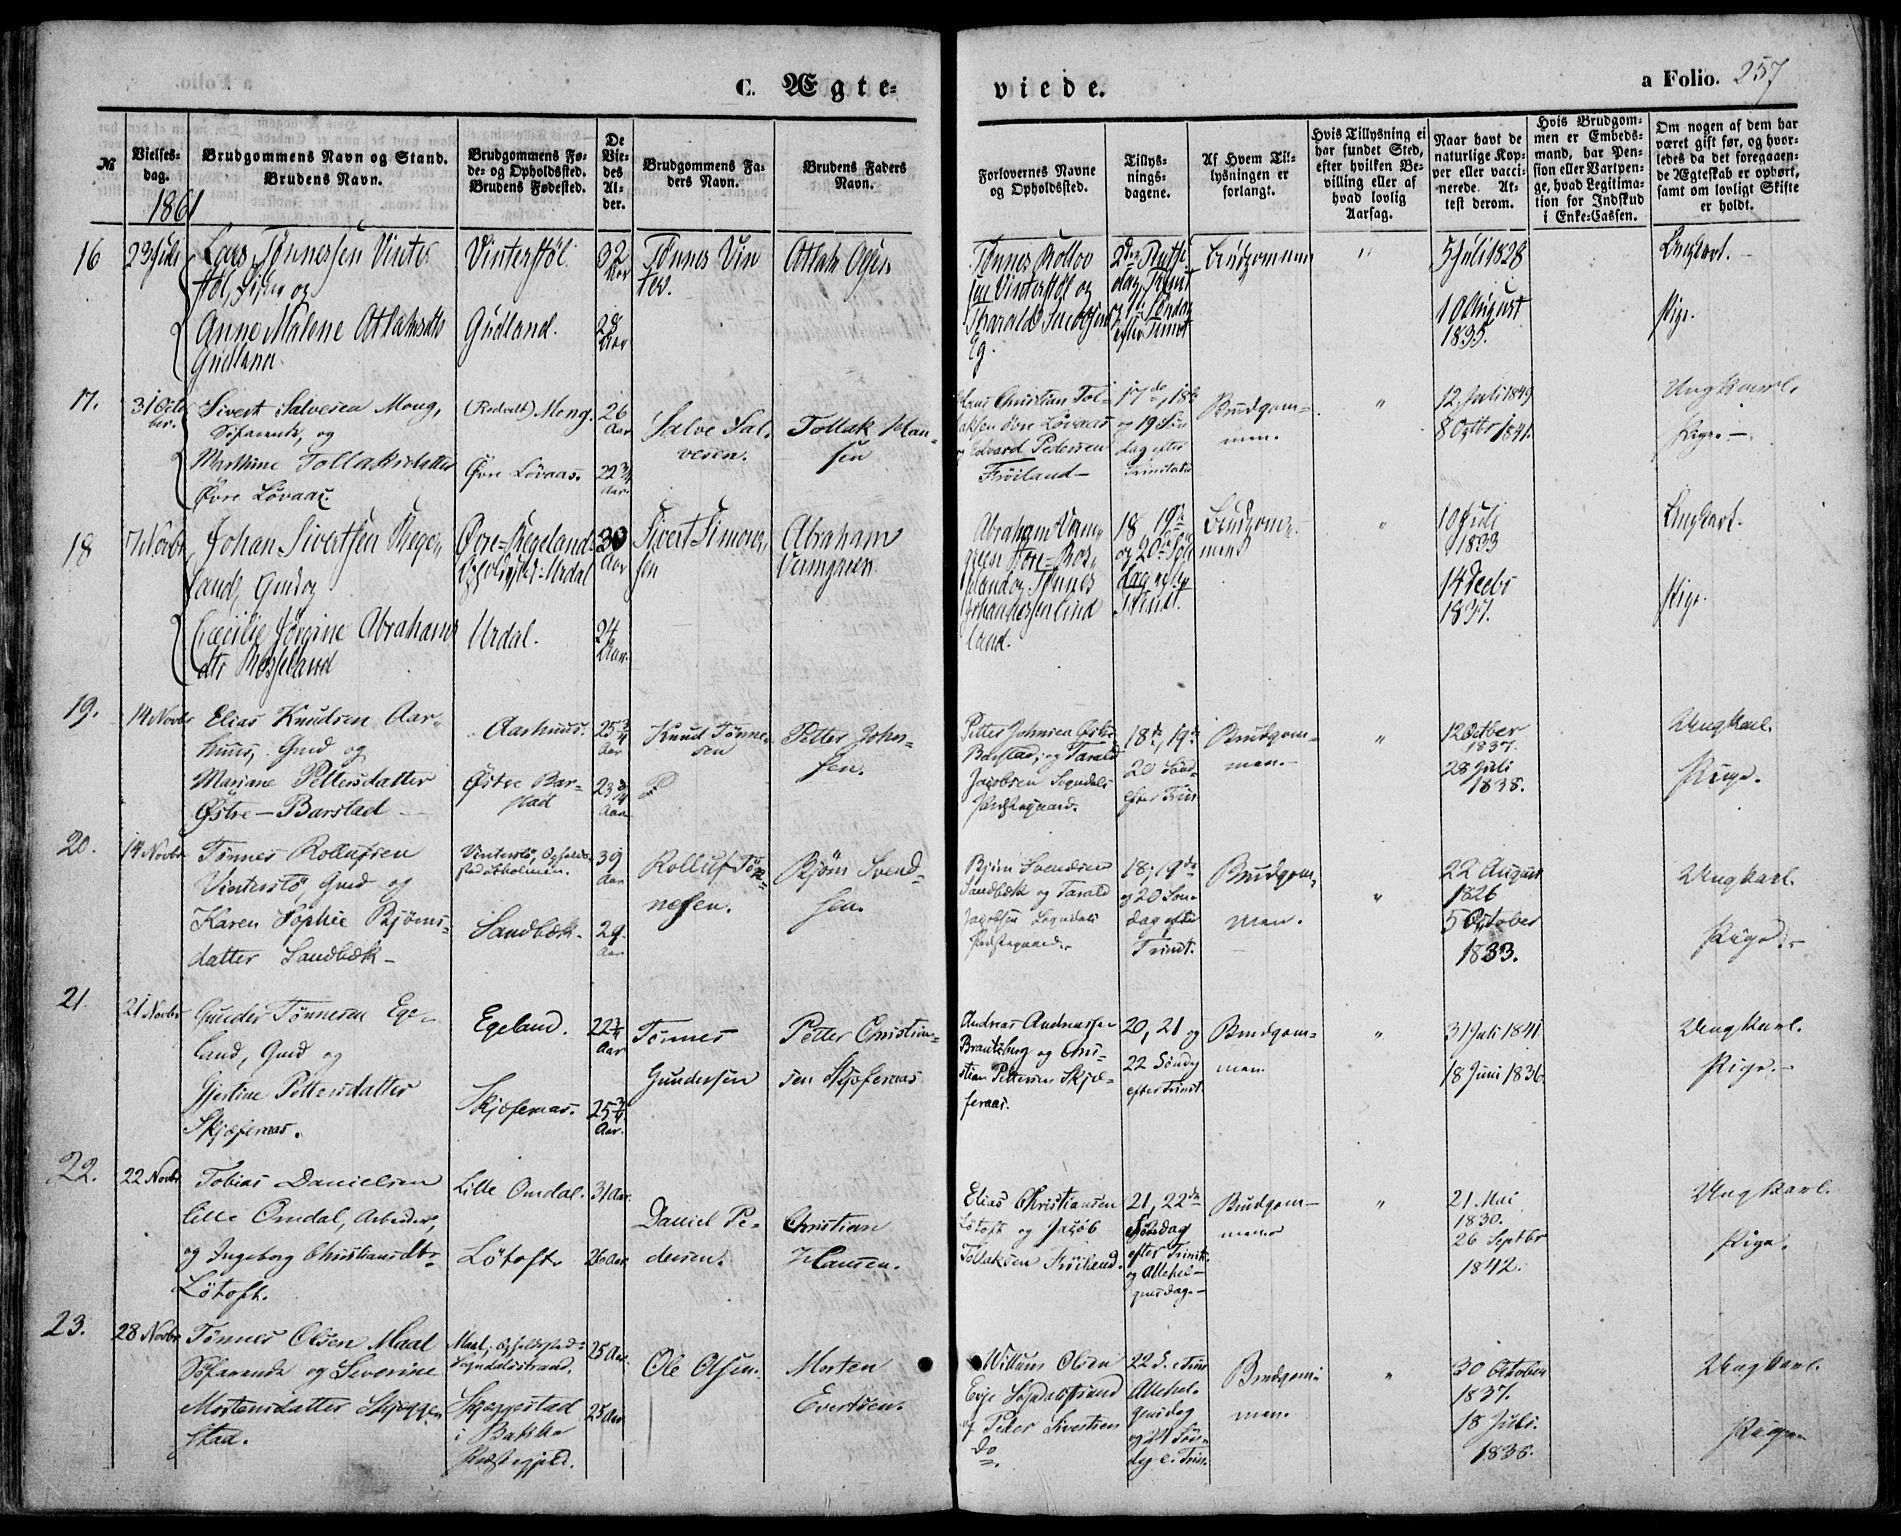 C. Ægte-
viede.
a Folio. 257
№
Vielses-
dag.
1861
Brudgommens Navn og Stand.
Brudens Navn.
Brudgommens Fø-
de- og Opholdssted.
Brudens Fødested.
De
Vie-
des
Al-
der.
Brudgommens Fa-
ders Navn.
Brudens Faders
Navn.
Forlovernes Navne
og Opholdssted.
Tillys-
nings-
dagene.
Af Hvem Til-
lysningen er
forlangt.
Hvis Tillysning ei
har fundet Sted,
efter hvilken Be-
villing eller af
hvad lovlig
Aarsag.
Naar havt de
naturlige Kop-
per eller vacci-
nerede. At-
test derom.
Hvis Brudgom-
men er Embeds-
mand, har Pen-
sion eller Vartpen-
ge, hvad Legitima-
tion for Indskud
i Enke-Cassen.
Om nogen af dem har
været gift før, og hvor-
ledes da det foregaaen-
de Ægteskab er ophørt,
samt om lovligt Skifte
er holdt.
16
Lars Tønnessen Vinter
støl, og
Anne Malene Attlaksdtr
Gudland
Vinterstøl.
Gudland.
32
Aar
28
Aar
Tønnes Vin
Attlak
Tønnes Rollov
sen Vinterstøl og
Tharald Jacobsen
Eg.
Brudgommen
5 Juli 1828
10 August
1835.
Ungkarl.
Pige.
17.
31 Octo
ber.
Sivert Salvesen Mong,
Søfarende, og
Marthine Tollaksdatter
Øvre Løvaas.
(Rodvelt) Mong.
Øvre Løvaas.
26
Aar
22 3/4
Aar
Salve Sal-
vesen.
Tollak Han-
sen
Hans Christian Tol-
laksen Øvre Løvaas
og Edvard Pedersen
Frøiland
17de, 18de
og 19 Søn
dag efter
Trinitatis
Brudgom-
men.
"
12 Juli 1849
8 Octbr 1841.
Ungkarl.
Pige.
18
7 Novbr
Johan Sivertsen Rege-
land, Gmd og
Cæcilie Jørgine Abrahams
dtr Rosseland
Øvre-Regeland
Opholdssted: Urdal
Urdal.
30
Aar
24
Aar.
Sivert Simon-
sen
Abraham
Abraham
og Tønnes
land.
18 19de
og 20de Søn
dag efter
Trinit.
Brudgom-
men
"
10 Juli
1833
14 Decbr
1837.
Ungkarl.
Pige.
19.
14 Novbr
Elias Knudsen Aar-
huus, Gmd og
Mariane Pettersdatter
Østre-Barstad
Aarhuus.
Østre Bar-
stad
25 3/4
Aar
23 3/4
Aar
Knud Tønne-
sen
Petter John-
sen.
Petter Johnsen Østre
Barstad, og Tarald
Jacobsen Sogndals
Præstegaard.
18de, 19de
20 Sønd
efter Trin.
Brudgom-
men.
"
12 October
1837.
28 Juli
1838.
Ungkarl.
Pige.
20.
14 Novbr
Tønnes Rollufsen
Vinterstø Gmd og
Karen Sophie Bjørns-
datter Sandbæk
Vinterstø, Opholds-
sted
Sandbæk
39
Aar
29
Aar
Rolluf Tøn-
nesen.
Bjørn Svend-
sen.
Bjørn Svendsen
Sandbæk og Tarald
Jacobsen Sogndals
Præstegaard.
18, 19de
og 20 Søn-
dag efter
Trinit.
Brudgom-
men.
"
22 August
1826
5 October
1833.
Ungkarl.
Pige.
21
21 Novbr
Gunder Tønnesen Ege-
land, Gmd og
Gjertine Pettersdatter
Skjæfernas.
Egeland.
Skjæfernas.
22 3/4
Aar
25 3/4
Aar.
Tønnes
Gundersen
Petter Christian-
sen Skjæfernas
Andreas Andreassen
Brautsberg og Chri-
stian Pettersen Skjæ-
feraas.
20, 21 og
22 Søndg
efter Trinit.
Brudgom-
men.
"
31 Juli 1841
18 Juni 1836.
Ungkarl.
Pige.
22.
22 Novbr
Tobias Danielsen
lille Omdal, Arbeider,
og Ingeborg Christiansdtr
Løtoft.
Lille Omdal.
Løtoft.
31 Aar.
26 Aar
Daniel Pe-
dersen.
Christian
Hansen.
Elias Christiansen
Løtoft og Jacob
Tollaksen Frøiland.
21, 22de
Søndag
efter Trinit.
og Allehel-
gensdag.
Brudgom-
men
"
21 Mai
1830.
26 Septbr
1842.
Ungkarl.
Pige.
23.
28 Novbr
Tønnes Olsen Maal
Søfarende og Severine
Mortensdatter Skjeggen
stad.
Maal, Opholdssted:
Sogndalsstrand.
Skjeggestad
i Bakke
Præstegjeld.
25 Aar.
25 Aar
Ole Olsen.
Morten
Evertsen.
Willum Olsen
Evje Sogndalsstrand
og Peder Sivertsen
Do
22 S. e Trin
Allehel-
gensdag
og 24 Søn-
dag e. Trin.
Brudgom-
men.
"
30 October
1837.
18 Juli
1836.
Ungkarl.
Pige